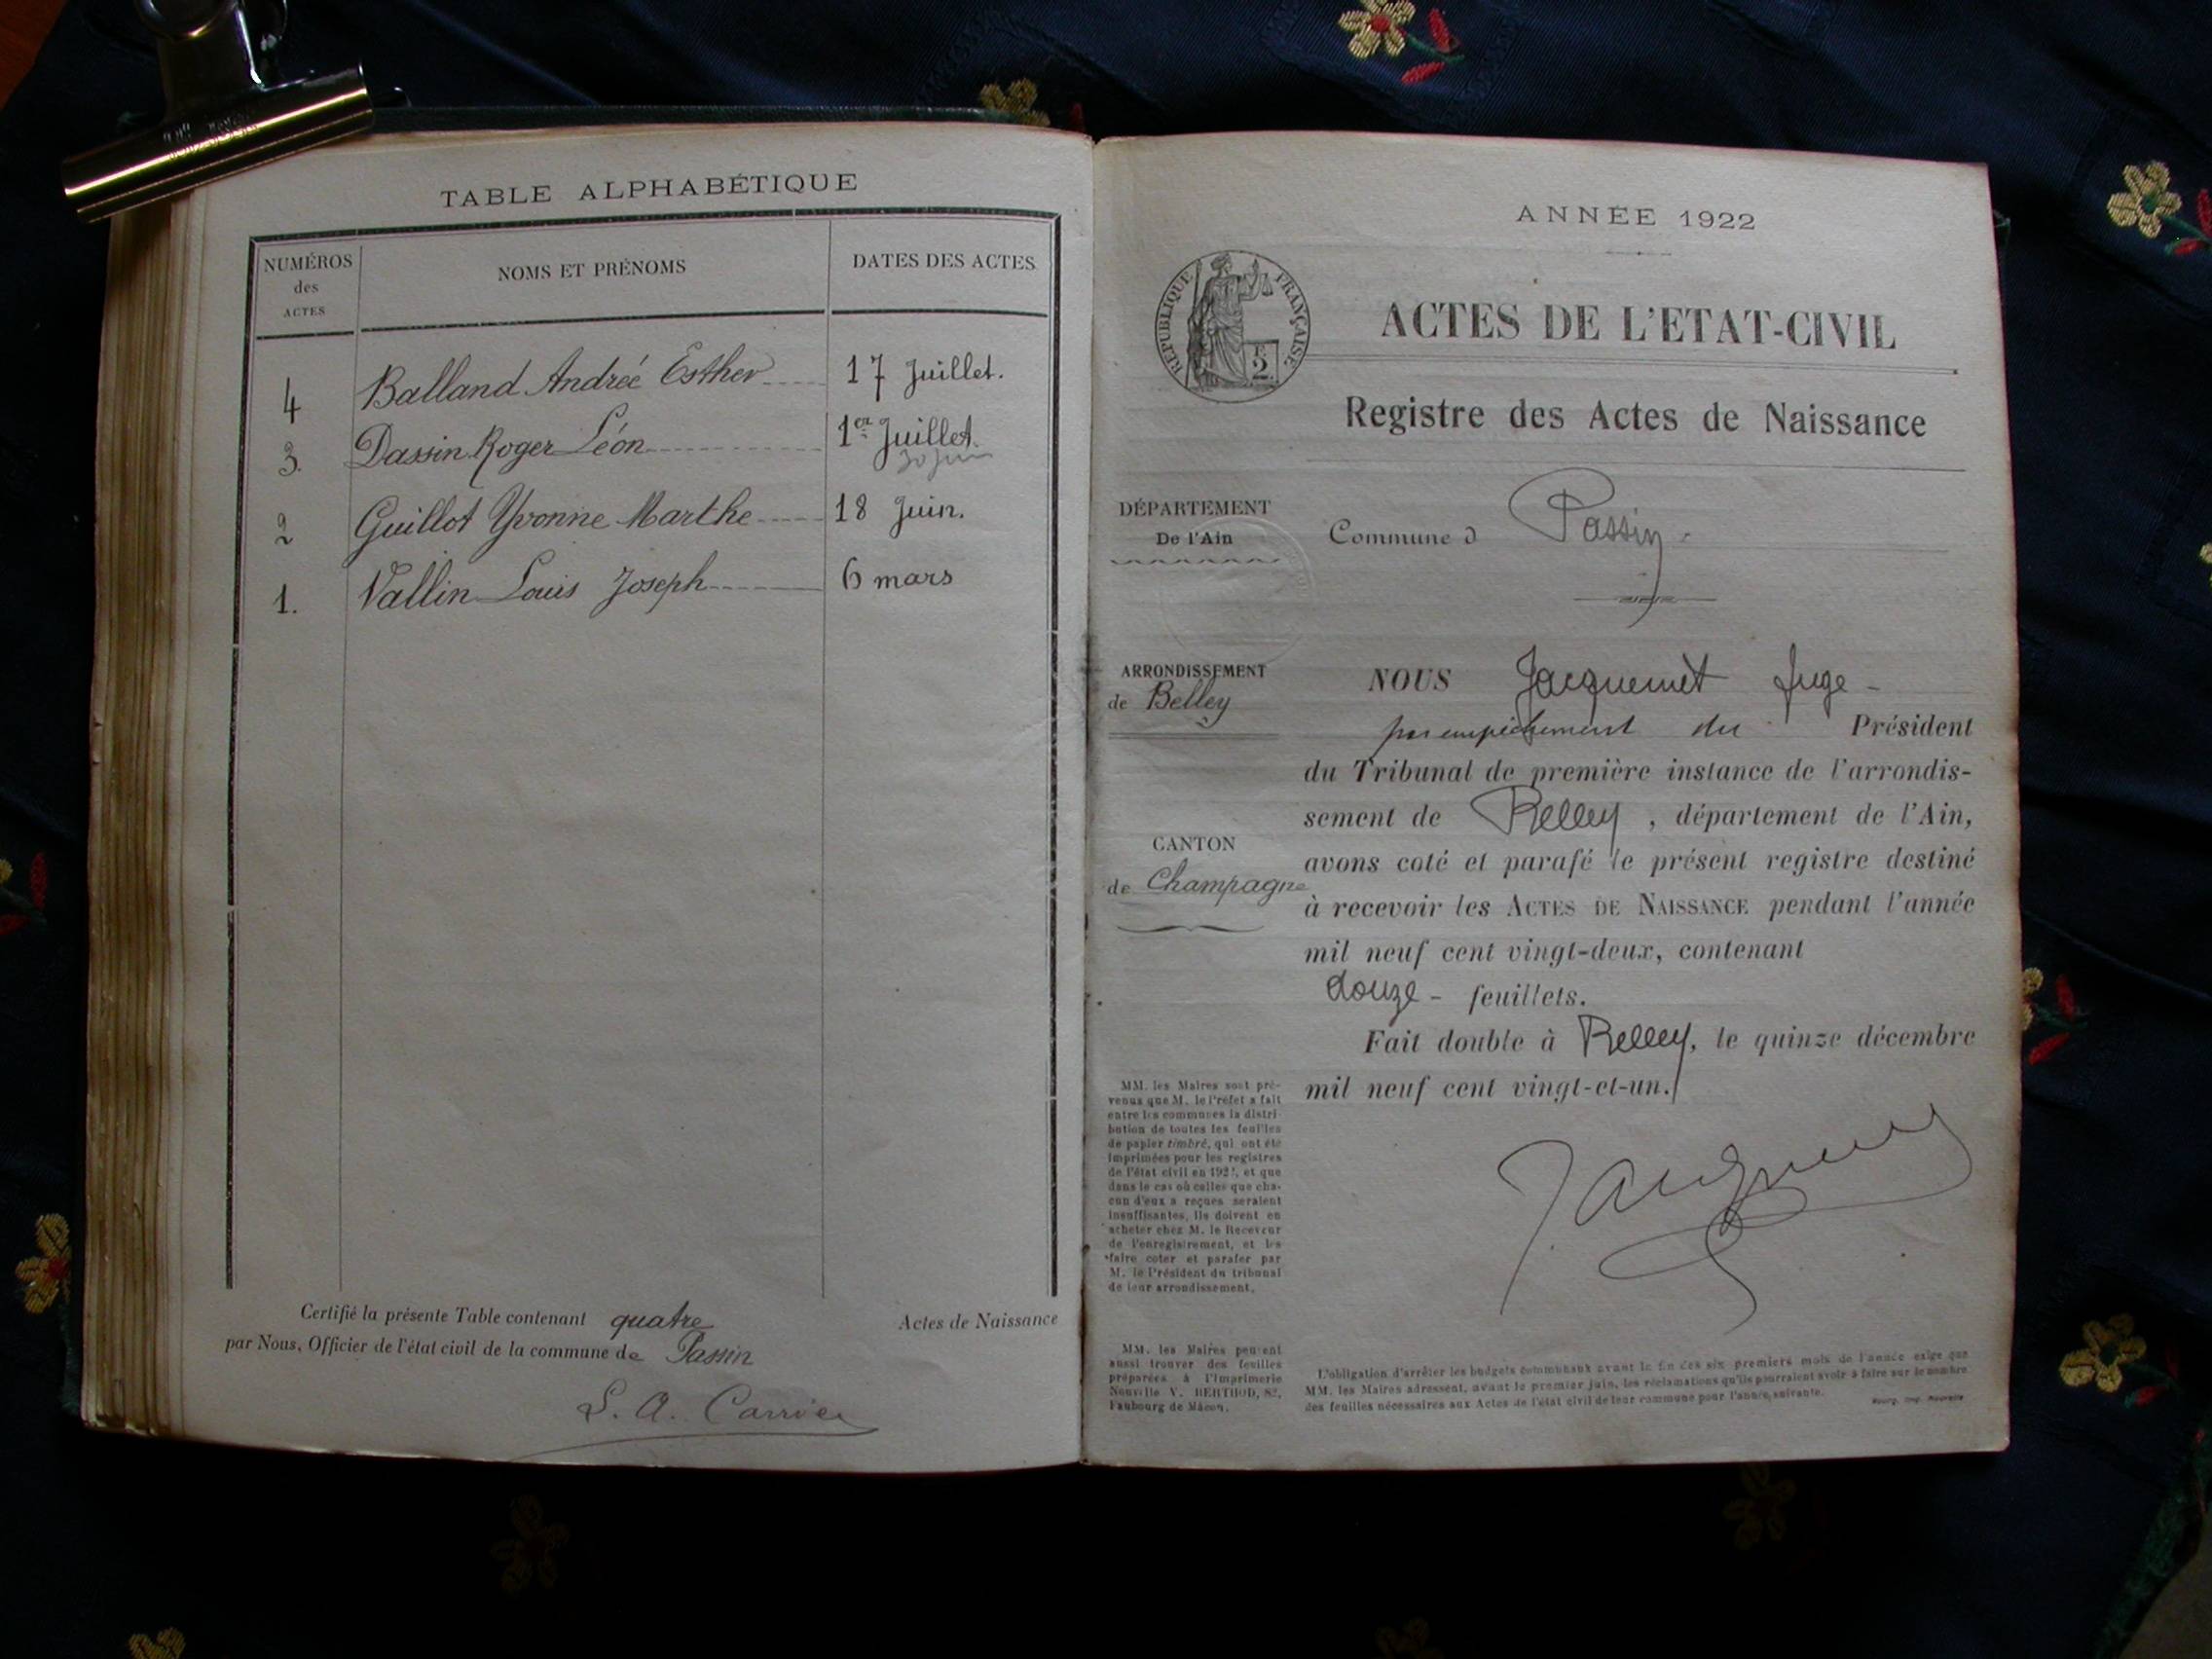 TABLE ALPHABÉTIQUE
NUMÉROS
des
ACTES
NOMS ET PRÉNOMS
DATES DES ACTES
4 Balland Andrée Esther 17 Juillet.
3. Dassin Roger Léon 1er Juillet.
30 Juin
2 Guillot Yvonne Marthe 18 Juin.
1. Vallin Louis Joseph 6 mars
Certifié la présente Table contenant quatre Actes de Naissance
par Nous, Officier de l'état civil de la commune de Passin
L. A. Carrier
ANNÉE 1922
RÉPUBLIQUE FRANÇAISE
2
ACTES DE L'ETAT-CIVIL
Registre des Actes de Naissance
DÉPARTEMENT
De l'Ain
Commune d Passin
ARRONDISSEMENT
de Belley
CANTON
de Champagne
NOUS Jacquemet Juge
par empêchement du Président
du Tribunal de première instance de l'arrondis-
sement de Belley, département de l'Ain,
avons coté et parafé le présent registre destiné
à recevoir les ACTES DE NAISSANCE pendant l'année
mil neuf cent vingt-deux, contenant
douze - feuillets.
Fait double à Belley, le quinze décembre
mil neuf cent vingt-et-un.
MM. les Maires sont pré-
venus que M. le Préfet a fait
entre les communes la distri-
bution de toutes les feuilles
de papier timbré, qui ont été
imprimées pour les registres
de l'état civil en 192, et que
dans le cas où celles que cha-
cun d'eux a reçues seraient
insuffisantes, ils doivent en
acheter chez M. le Receveur
de l'enregistrement, et les
faire coter et parafer par
M. le Président du tribunal
de leur arrondissement.
MM. les Maires peuvent
aussi trouver des feuilles
préparées à l'Imprimerie
Nouvelle V. BERTHOD, 82,
Faubourg de Mâcon.
L'obligation d'arrêter les budgets communaux avant la fin des six premiers mois de l'année exige que
MM. les Maires adressent, avant le premier juin, les réclamations qu'ils pourraient avoir à faire sur le nombre
des feuilles nécessaires aux Actes de l'état civil de leur commune pour l'année suivante.
Bourg, Imp. Nouvelle